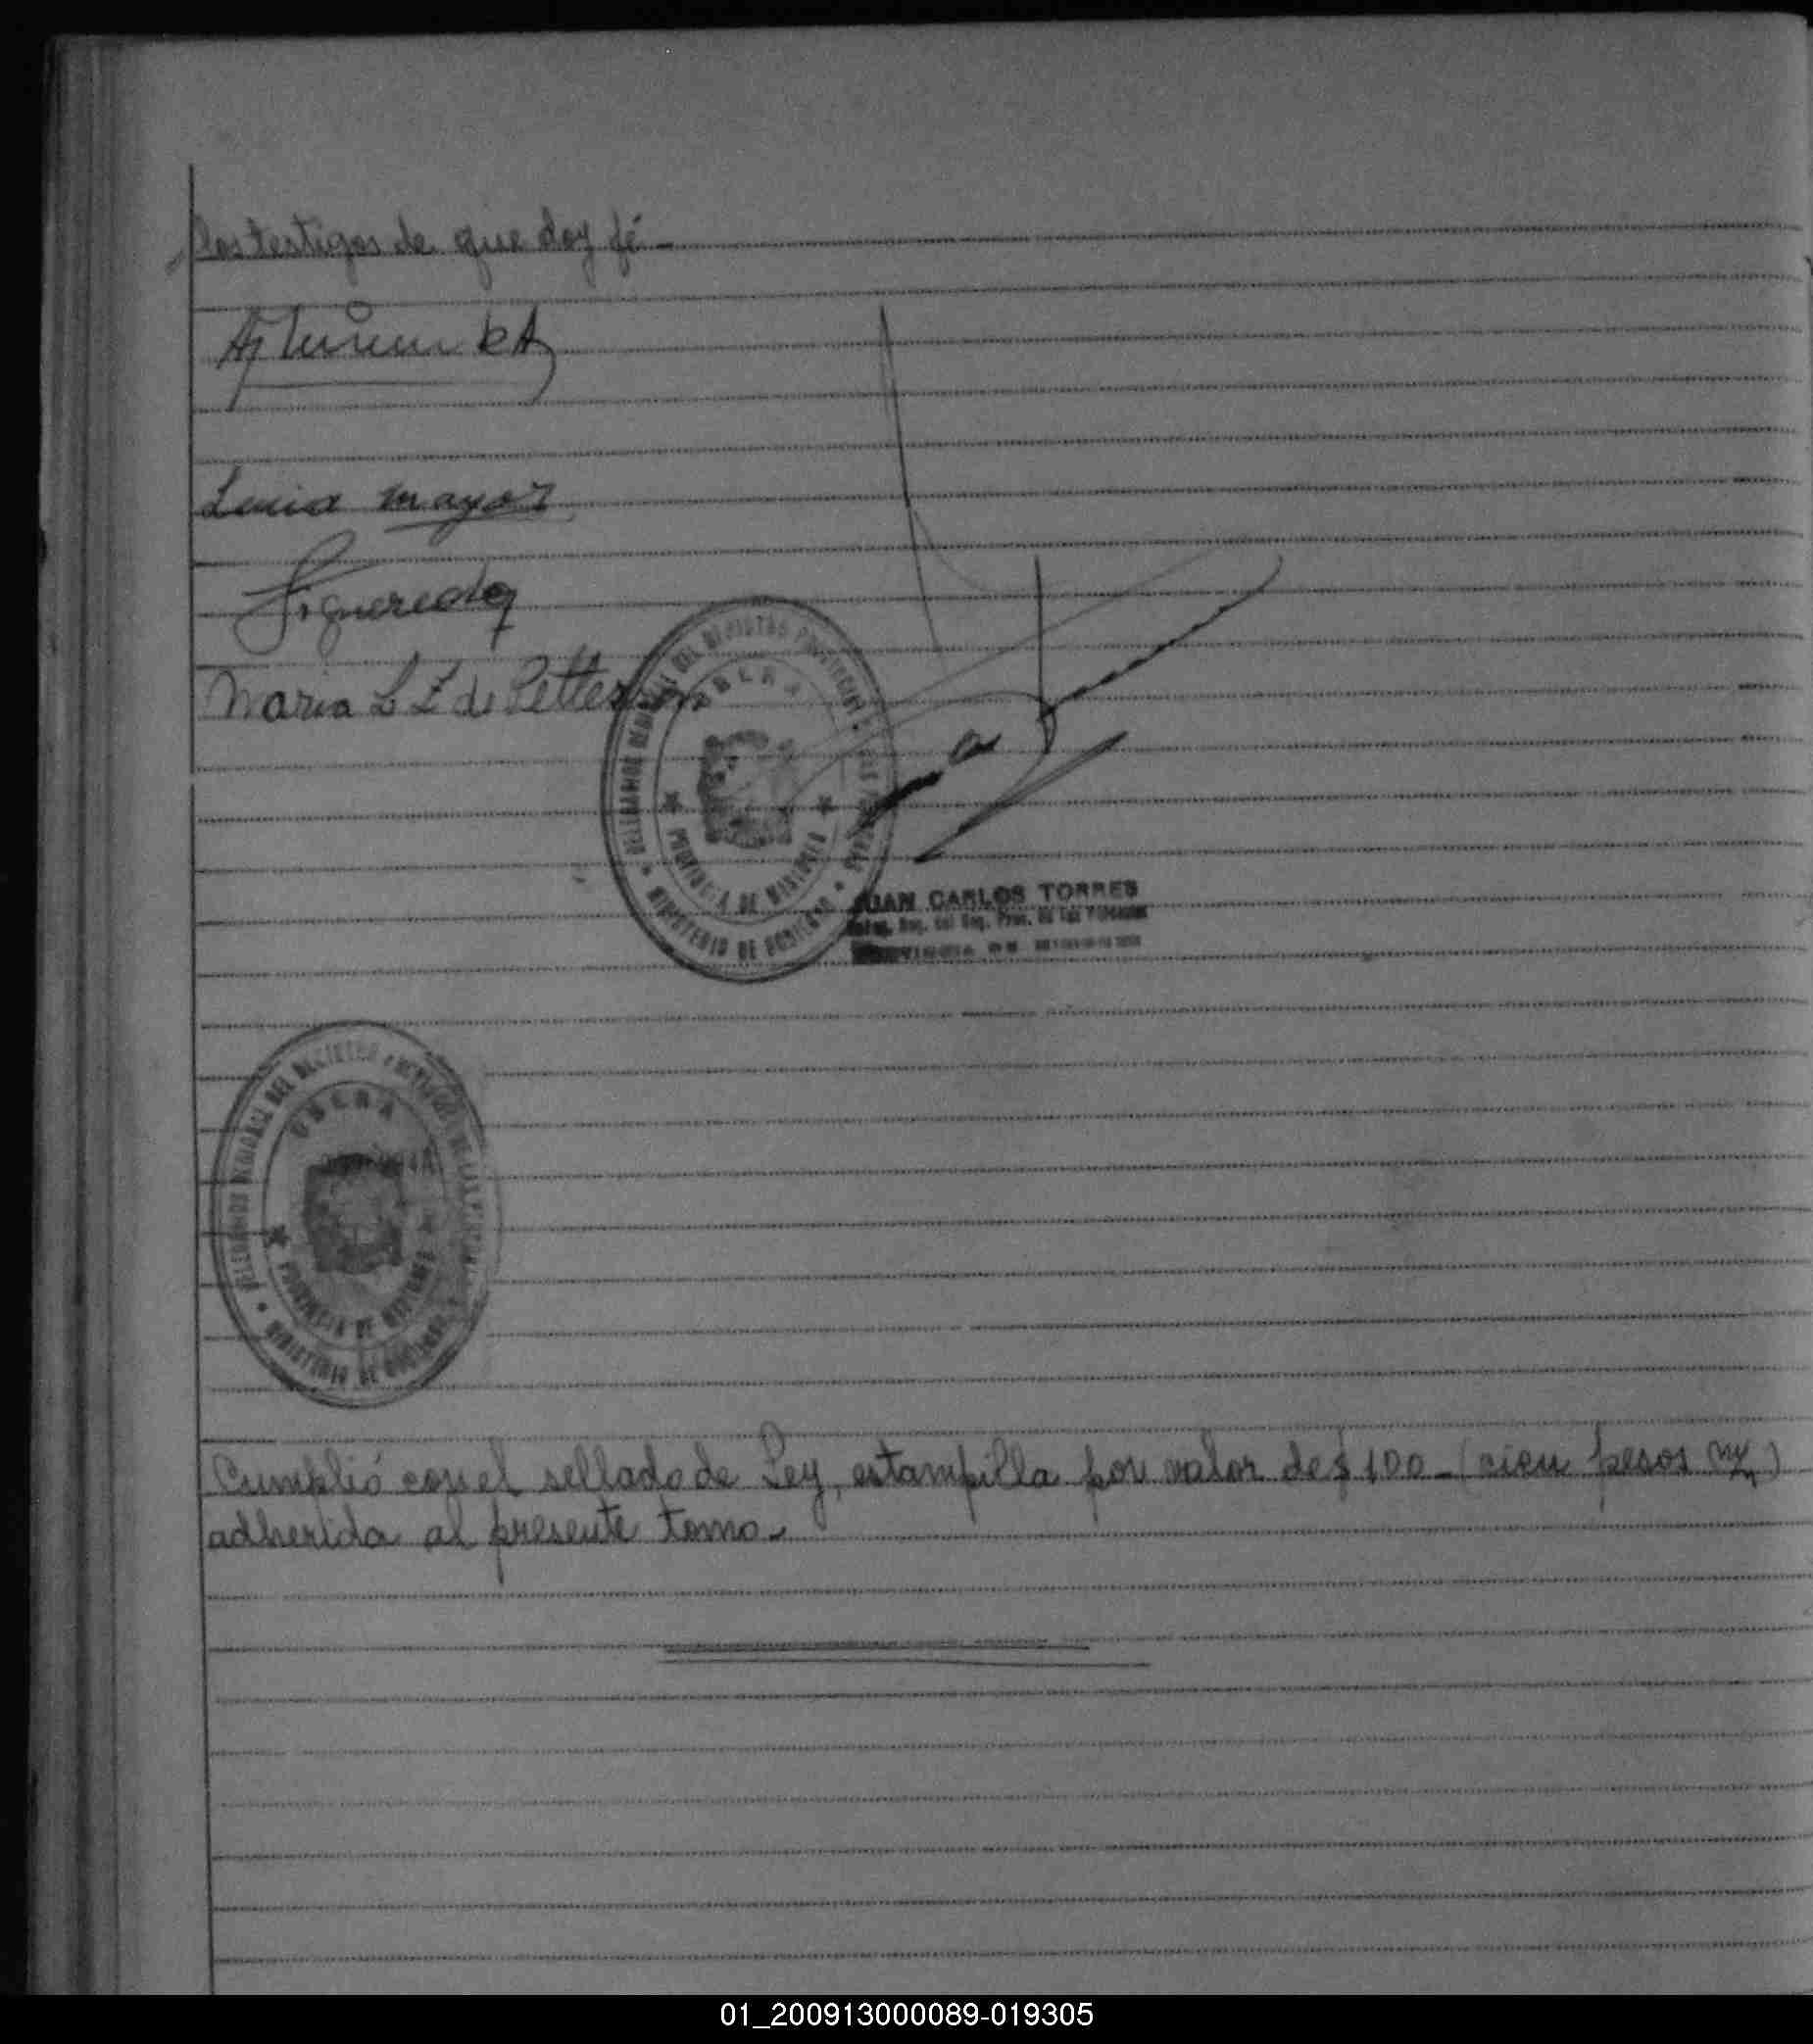 los testigos de que doy fé.-
Lucia mayor
Figueredo
Maria L Z de Petterson
DELEGADO REGIONAL DEL REGISTRO PROVINCIAL DE LAS PERSONAS
OBERA
PROVINCIA DE MISIONES
MINISTERIO DE GOBIERNO
JUAN CARLOS TORRES
Deleg. Reg. del Reg. Prov. de las Personas
PROVINCIA DE MISIONES
DELEGADO REGIONAL DEL REGISTRO PROVINCIAL DE LAS PERSONAS
OBERA
PROVINCIA DE MISIONES
MINISTERIO DE GOBIERNO
Cumplió con el sellado de Ley, estampilla por valor de $ 100.- (cien pesos m/n)
adherida al presente tomo.-
01_200913000089-019305